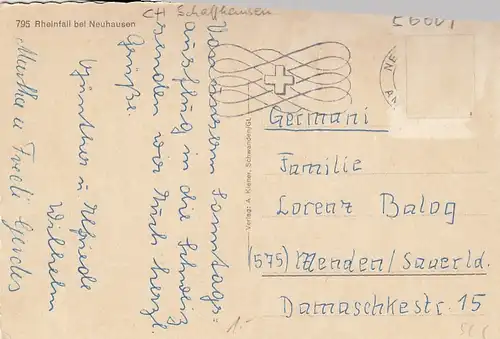 795 Rheinfall bei Neuhausen
CH Schaffhausen
Von unserm Sonntags=
ausflug in die Schweiz
senden wir Euch herzl.
Grüße.
Günther u
Wilhelm
Martha u Fredi Gerdes
Verlag: A. Kiener, Schwanden/Gl.
NE
Germani
Familie
Lorenz Balog
(575) Menden/Sauerld.
Damaschkestr. 15
1.-